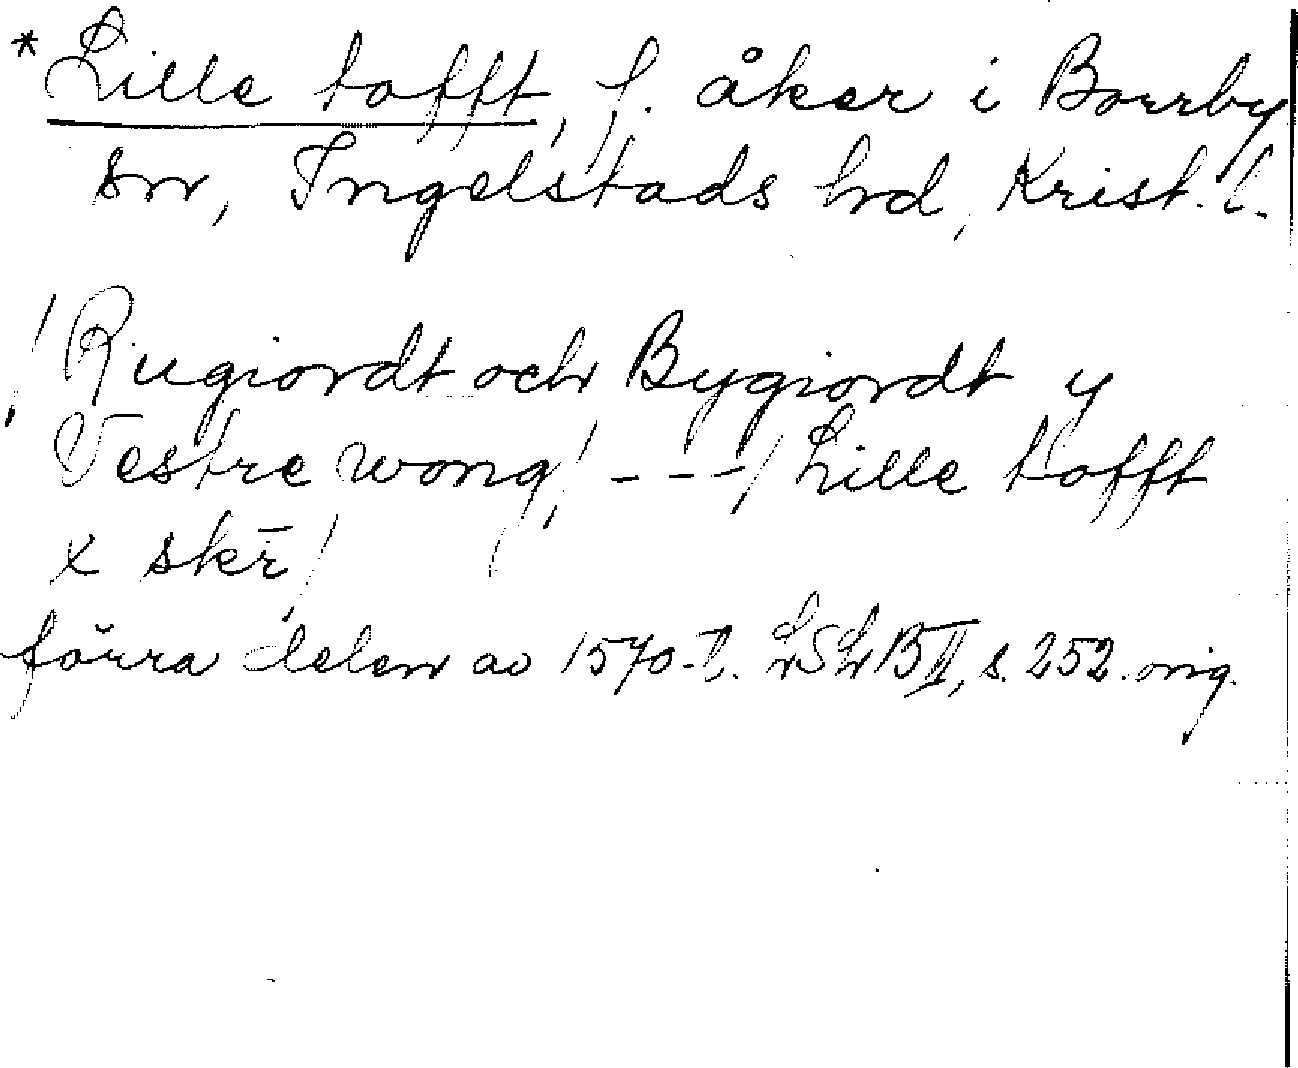 *Lille tofft, f. åker i Borrby
sn, Ingelstads hd, Krist. l.
/Rugiordt och Bygiordt y
Vestre wong/ - - -/ Lille tofft
x skr̄/
förra delen av 1570-t. LSLB II, s. 252. orig.